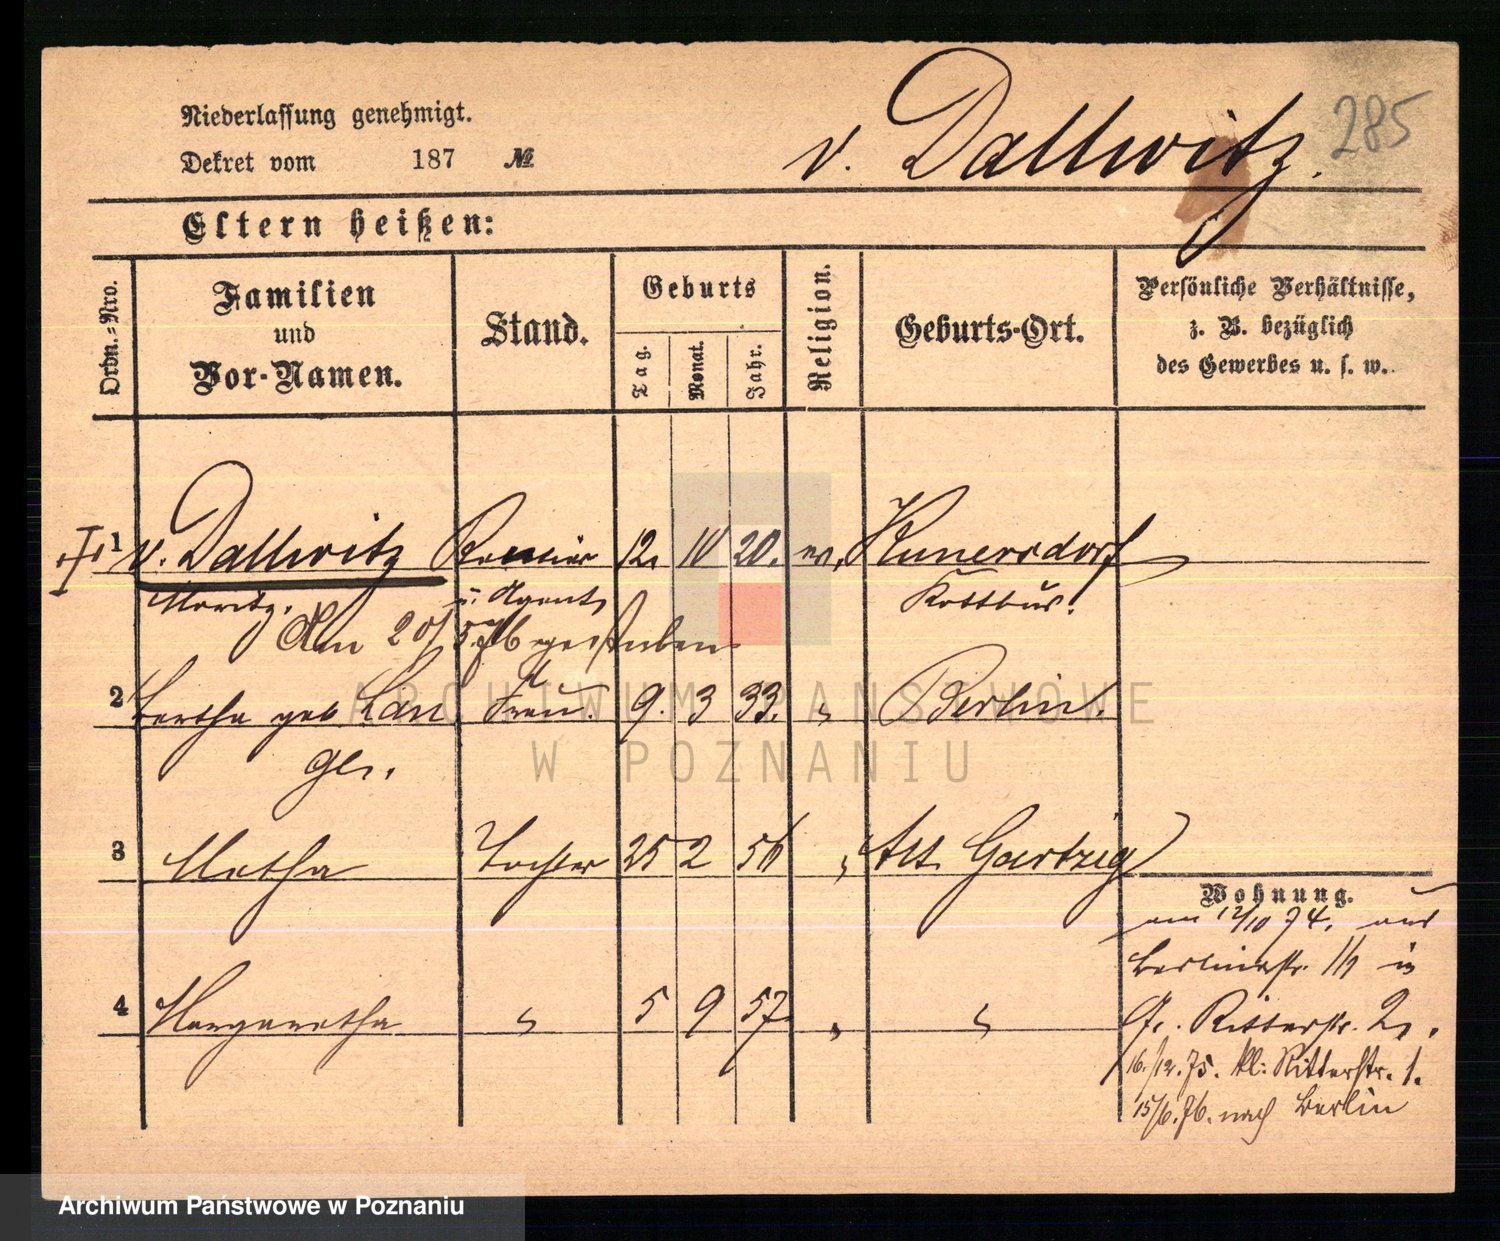 Niederlassung genehmigt.
Dekret vom 187 №
v. Dallwitz.
285
Eltern heißen:
Ordn.-Nro.
Familien
und
Vor-Namen.
Stand.
Geburts
Tag.
Monat.
Jahr.
Religion.
Geburts-Ort.
Persönliche Verhältnisse,
z. B. bezüglich
des Gewerbes u. s. w.
1 v. Dallwitz Rentier 12. 10 20. ev. Kunersdorf
Moritz. u. Agent Kottbus.
Am 20/5.76 gestorben
2 Bertha geb Lan Frau. 9. 3 33. " Berlin.
ge.
3 Metha Tochter 25 2 56 " Alt Goertzig
4 Margaretha " 5 9 57. " "
Wohnung.
am 12/10 74. aus
Berlinerstr. 16 in
Gr. Ritterstr. 2.
16./12.75. kl: Ritterstr. 1.
15/6.76. nach Berlin
ARCHIWUM PAŃSTWOWE
W POZNANIU
Archiwum Państwowe w Poznaniu